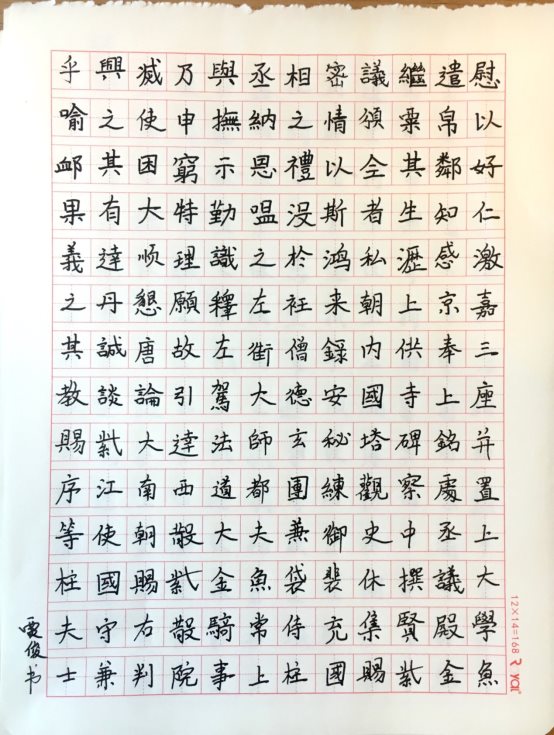 乎興滅乃與丞相密議繼遣慰
喻之使申撫納之情頒粟帛以
卹其困窮示恩禮以全其鄰好
果有大特勤嗢没斯者生知仁
義達順理識之於鸿私瀝感激
之丹懇願釋左衽来朝上京嘉
其誠唐故左街僧録内供奉三
教談論引駕大德安國寺上座
賜紫大達法師玄秘塔碑銘并
序江南西道都團練觀察處置
等使朝散大夫兼御史中丞上
柱國賜紫金魚袋裴休撰議大
夫守右散騎常侍充集賢殿學
士兼判院事上柱國賜紫金魚
霞俊书
12×14=168